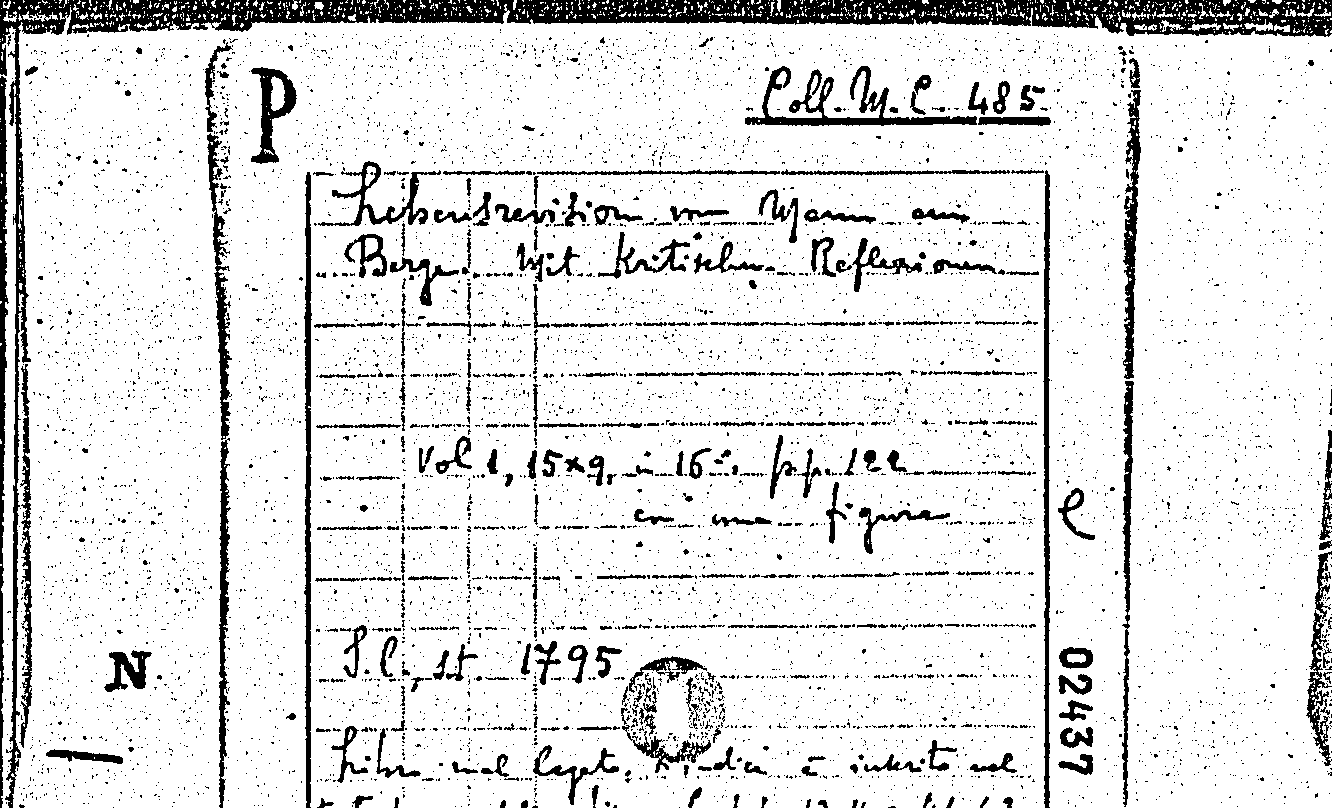 P
Coll. M. C. 485
Lebensrevision vom Mann am
Berge. Mit Kritischen Reflexionen
Vol 1, 15x9, in 16º. pp. 122
con una figura
S. l., st. 1795
Libro mal legato,
e
N
02437